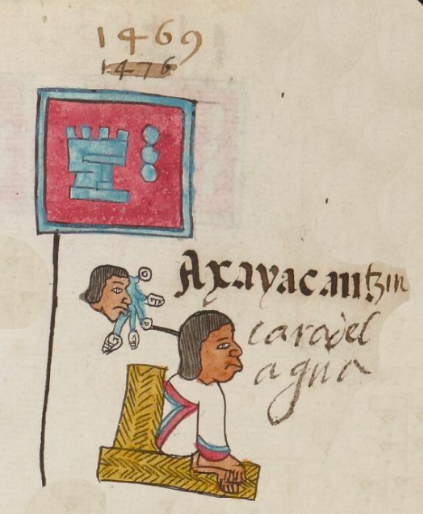 1469
1476
Axayacantzin
cara del
agua